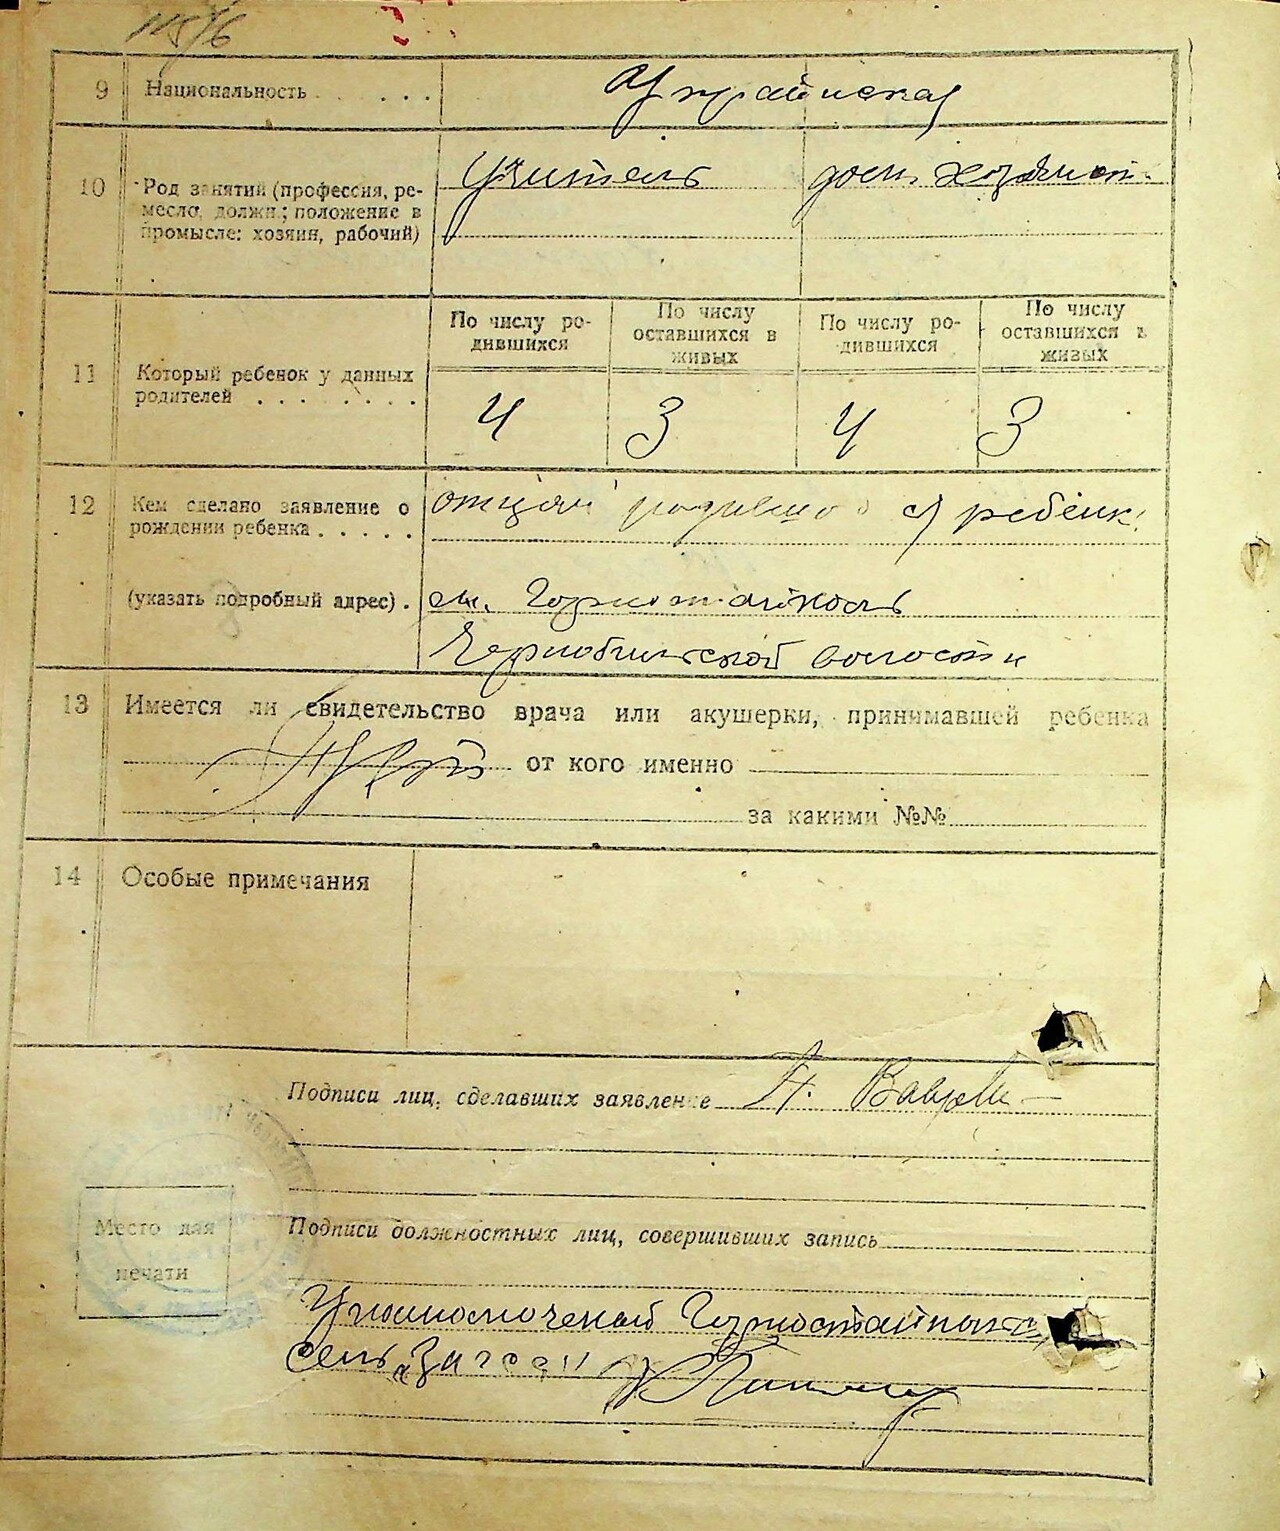 1156
9 Национальность Украинская
10 Род занятий (профессия, ре-
месло, должн.; положение в
промысле: хозяин, рабочий)
Учитель
дом. хозяйка
11 Который ребенок у данных
родителей
По числу ро-
дившихся
По числу
оставшихся в
живых
По числу ро-
дившихся
По числу
оставшихся в
живых
4 3 4 3
12 Кем сделано заявление о
рождении ребенка
отцом ребенк
(указать подробный адрес)
м. Горностайполь
Чернобильской волости
13 Имеется ли свидетельство врача или акушерки, принимавшей ребенка
от кого именно
за какими №№
14 Особые примечания
Подписи лиц, сделавших заявление
Подписи должностных лиц, совершивших запись
Место для
печати
Уполномоченый Горностайпол